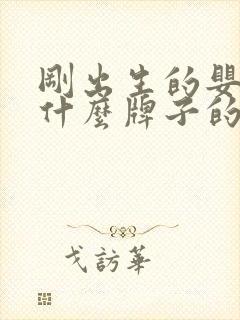 剛出生的嬰
什麼牌子的
戈訪華